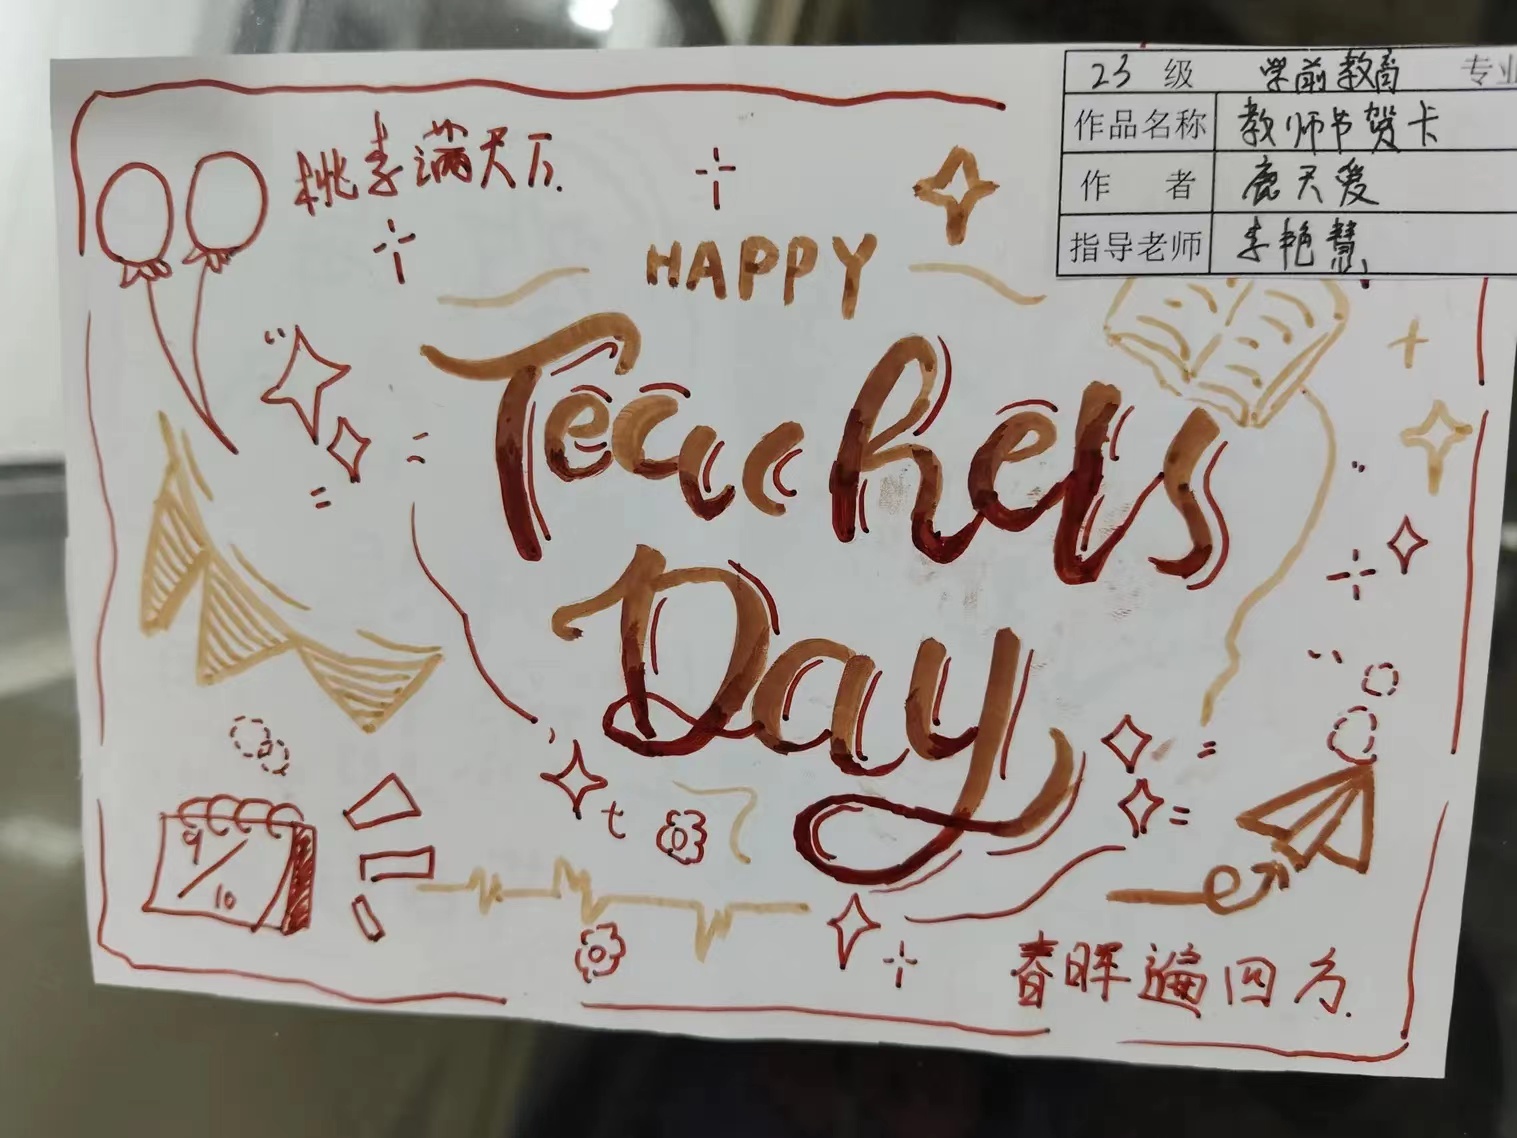 23 级 学前教育 专业
作品名称 教师节贺卡
作 者 鹿天爱
指导老师 李艳慧
桃李满天下.
HAPPY
Teachers
Day
9/10
春晖遍四方.